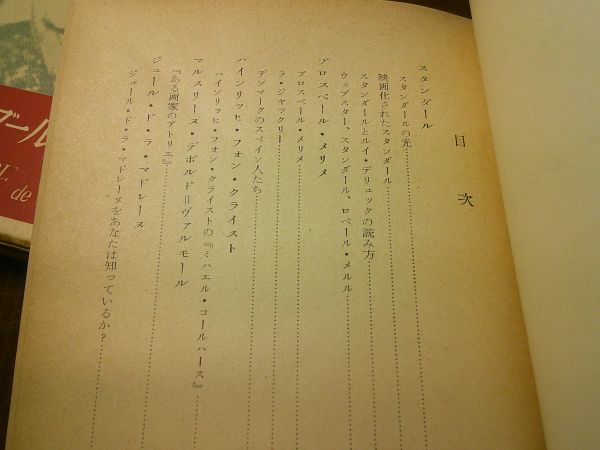 目次
スタンダール
スタンダールの光
映画化されたスタンダール
スタンダールとルイ・デリュックの読み方
ウェブスター、スタンダール、ロベール・メルル
プロスペール・メリメ
プロスペール・メリメ
ラ・ジャックリー
デンマークのスペイン人たち
ハインリッヒ・フォン・クライスト
ハインリッヒ・フォン・クライストの『ミハエル・コールハース』
マルスリーヌ・デボルド＝ヴァルモール
『ある画家のアトリエ』
ジュール・ド・ラ・マドレーヌ
ジュール・ド・ラ・マドレーヌをあなたは知っているか?
ゴール
de